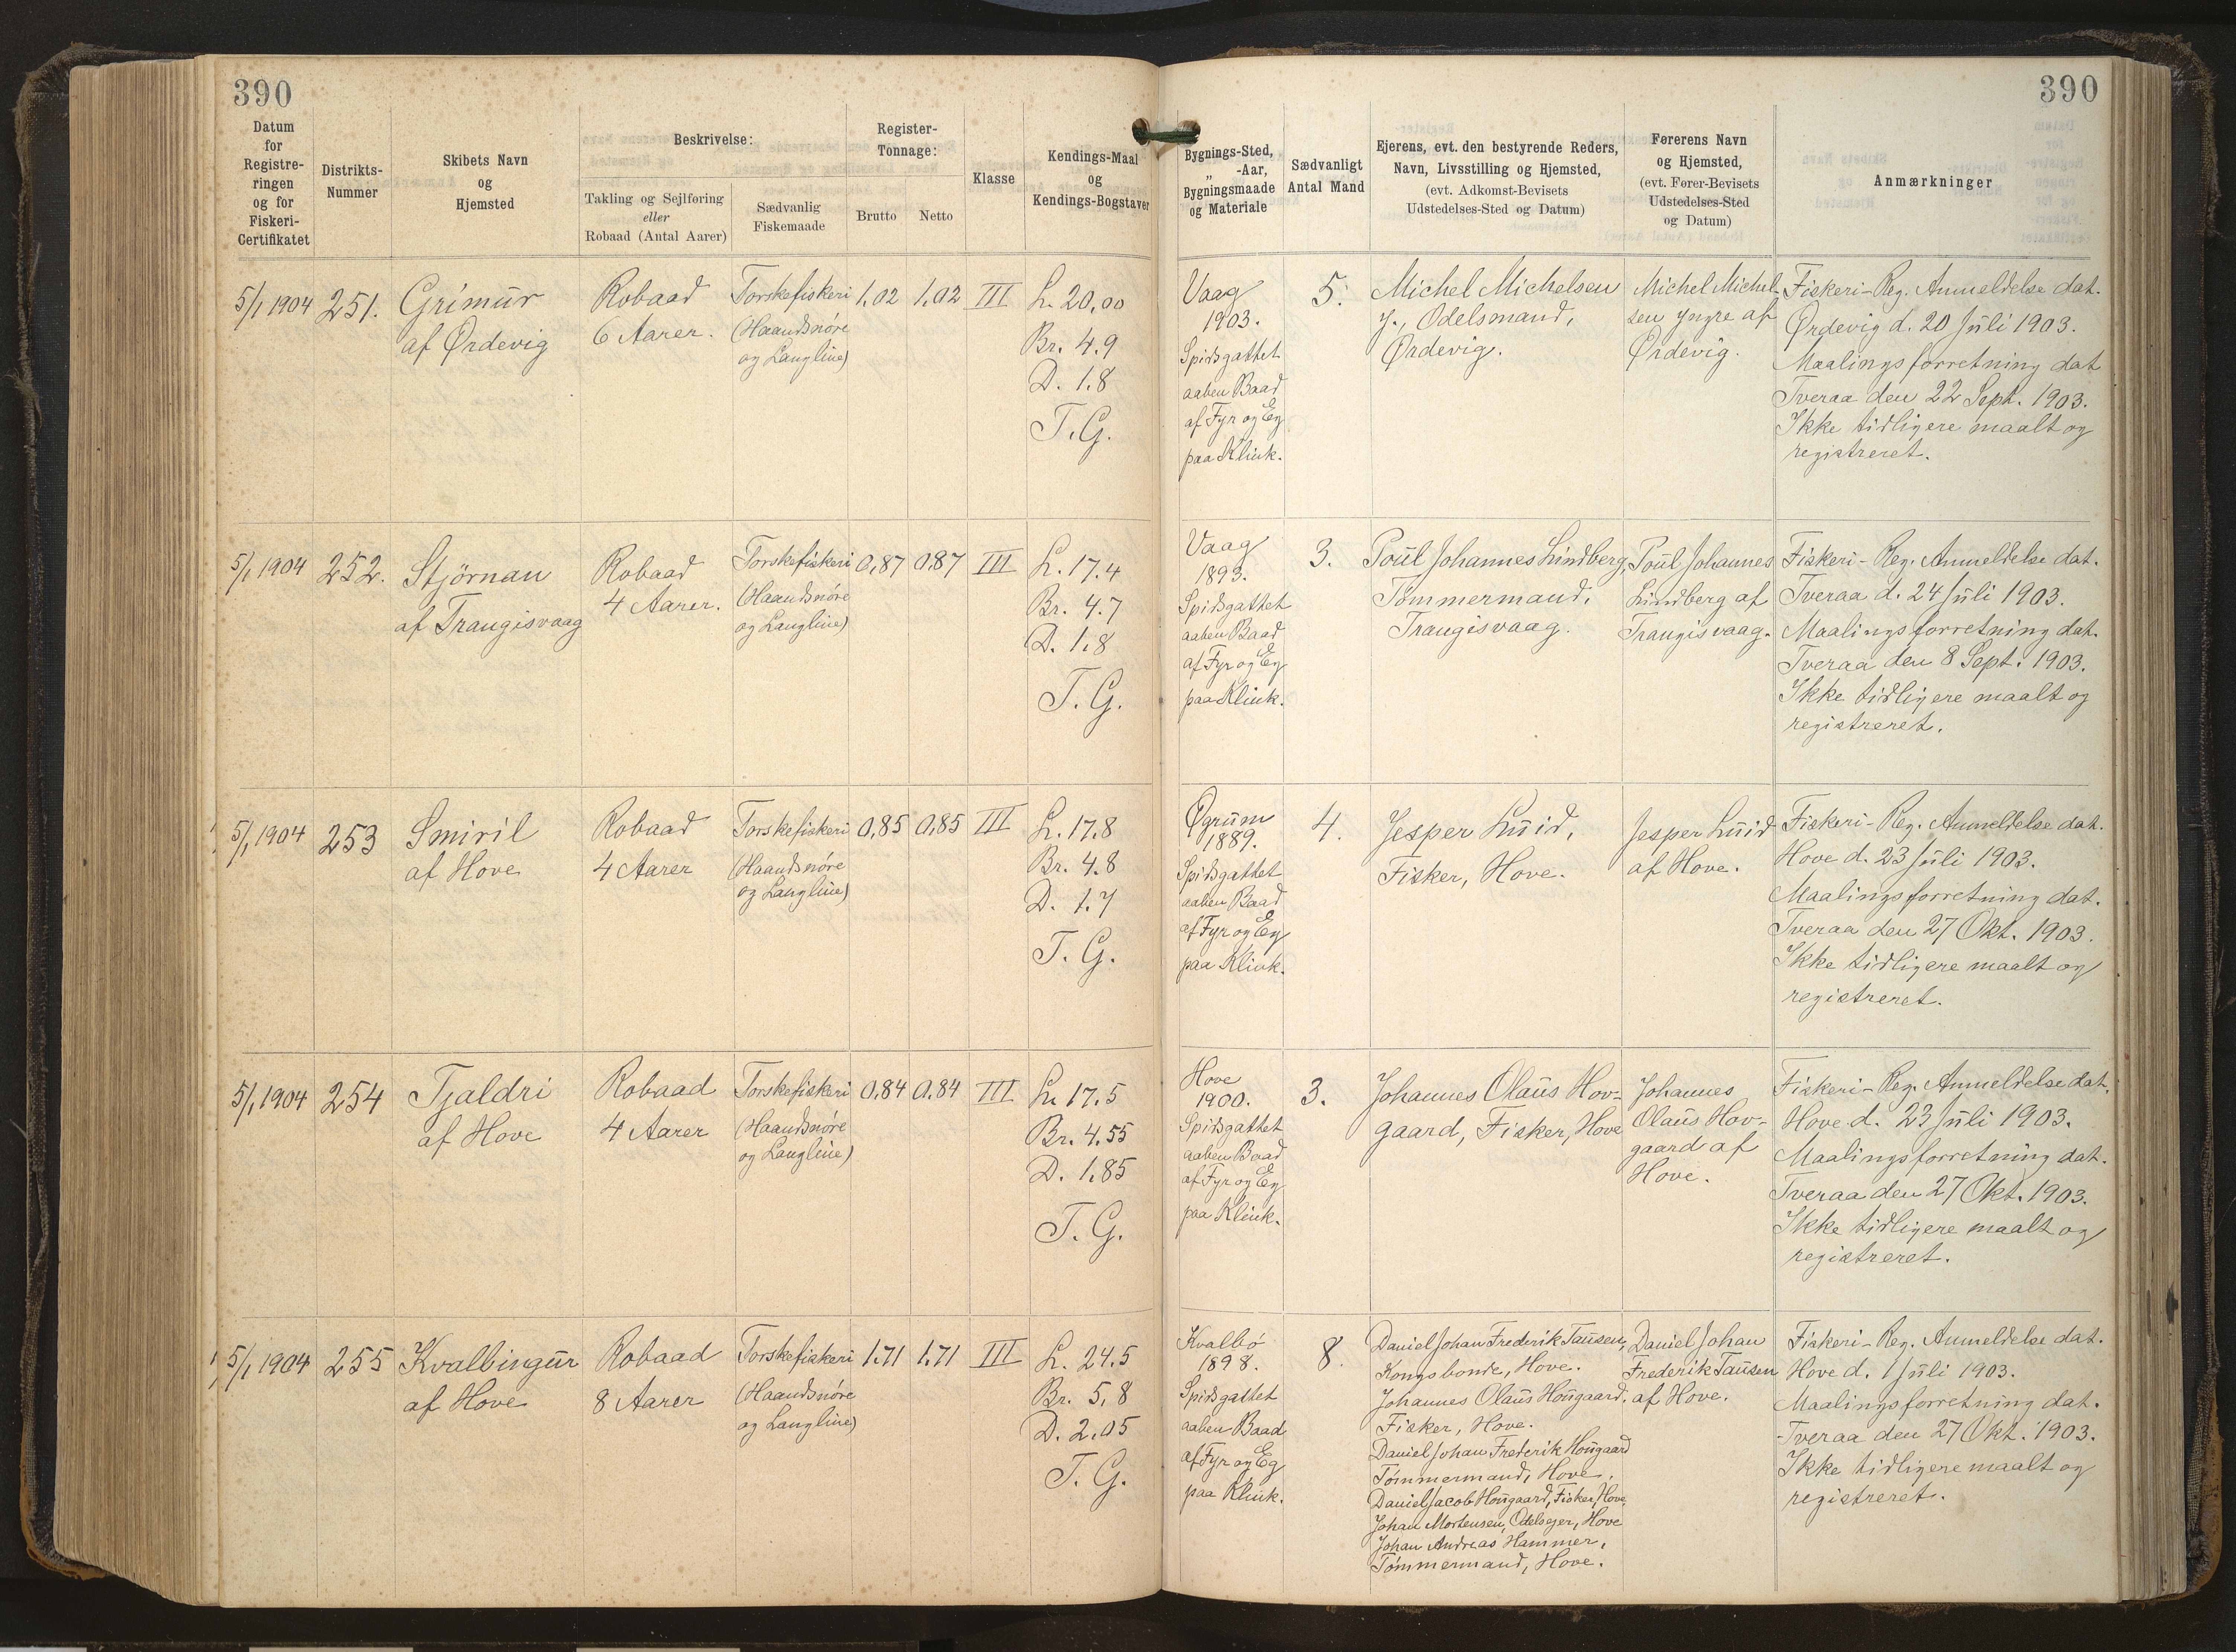 390
390
Datum
for
Registre-
ringen
og for
Fiskeri-
Certifikatet
Distrikts-
Nummer
Skibets Navn
og
Hjemsted
Beskrivelse:
Takling og Sejlføring
eller
Robaad (Antal Aarer)
Sædvanlig
Fiskemaade
Register-
Tonnage:
Brutto
Netto
Klasse
Kendings-Maal
og
Kendings-Bogstaver
Bygnings-Sted,
„ -Aar,
Bygningsmaade
og Materiale
Sædvanligt
Antal Mand
Ejerens, evt. den bestyrende Reders,
Navn, Livsstilling og Hjemsted,
(evt. Adkomst-Bevisets
Udstedelses-Sted og Datum)
Førerens Navn
og Hjemsted,
(evt. Fører-Bevisets
Udstedelses-Sted
og Datum)
Anmærkninger
5/1 1904
251.
Grimur
af Ørdevig
Robaad
6 Aarer.
Torskefiskeri
(Haandsnøre
og Langline)
1,02
1,02
III
L. 20,00
Br. 4.9
D. 1.8
T.G.
Vaag
1903.
Spidsgattet
aaben Baad
af Fyr og Eg
paa Klink.
5.
Michel Michelsen
y., Odelsmand,
Ørdevig.
Michel Michel-
sen yngre af
Ørdevig.
Fiskeri-Reg. Anmeldelse dat.
Ørdevig d. 20 Juli 1903.
Maalingsforretning dat
Tveraa den 22 Sept. 1903.
Ikke tidligere maalt og
registreret.
5/1 1904
252.
Stjörnan
af Trangisvaag
Robaad
4 Aarer.
Torskefiskeri
(Haandsnøre
og Langline)
0,87
0.87
III
L. 17.4
Br. 4.7
D. 1.8
T. G.
Vaag
1893.
Spidsgattet
aaben Baad
af Fyr og Eg
paa Klink.
3.
Poul Johannes Lindberg,
Tømmermand,
Trangisvaag.
Poul Johannes
Lindberg af
Trangisvaag.
Fiskeri-Reg. Anmeldelse dat.
Tveraa d. 24 Juli 1903.
Maalingsforretning dat.
Tveraa den 8 Sept. 1903.
Ikke tidligere maalt og
registreret.
5/1 1904
253
Smiril
af Hove
Robaad
4 Aarer
Torskefiskeri
(Haandsnøre
og Langline)
0,85
0,85
III
L. 17.8
Br. 4.8
D. 1.7
T. G.
Øgrum
1889.
Spidsgattet
aaben Baad
af Fyr og Eg
paa Klink.
4.
Jesper Luid,
Fisker, Hove.
Jesper Luid
af Hove.
Fiskeri-Reg. Anmeldelse dat.
Hove d. 23 Juli 1903.
Maalingsforretning dat.
Tveraa den 27 Okt. 1903.
Ikke tidligere maalt og
registreret.
5/1 1904
254
Tjaldri
af Hove
Robaad
4 Aarer
Torskefiskeri
(Haandsnøre
og Langline)
0.84
0.84
III
L. 17.5
Br. 4.55
D. 1.85
T. G.
Hove
1900.
Spidsgattet
aaben Baad
af Fyr og Eg
paa Klink.
3.
Johannes Olaus Hov-
gaard, Fisker, Hove
Johannes
Olaus Hov-
gaard af
Hove.
Fiskeri-Reg. Anmeldelse dat.
Hove d. 23 Juli 1903.
Maalingsforretning dat.
Tveraa den 27 Okt. 1903.
Ikke tidligere maalt og
registreret.
5/1 1904
255
Kvalbingur
af Hove
Robaad
8 Aarer
Torskefiskeri
(Haandsnøre
og Langline)
1.71
1.71
III
L. 24.5
Br. 5,8
D. 2.05
T. G.
Kvalbö
1898.
Spidsgattet
aaben Baad
af Fyr og Eg
paa Klink.
8.
Daniel Johan Frederik Tausen,
Kongsbonde, Hove.
Johannes Olaus Hougaard.
Fisker, Hove.
Daniel Johan Frederik Hougaard
Tømmermand, Hove,
Daniel Jacob Hougaard, Fisker, Hove,
Johan Mortensen, Odelsejer, Hove
Johan Andreas Hammer,
Tømmermand, Hove.
Daniel Johan
Frederik Tausen
af Hove.
Fiskeri-Reg. Anmeldelse dat.
Hove d. 1 Juli 1903.
Maalingsforretning dat.
Tveraa den 27 Okt. 1903.
Ikke tidligere maalt og
registreret.